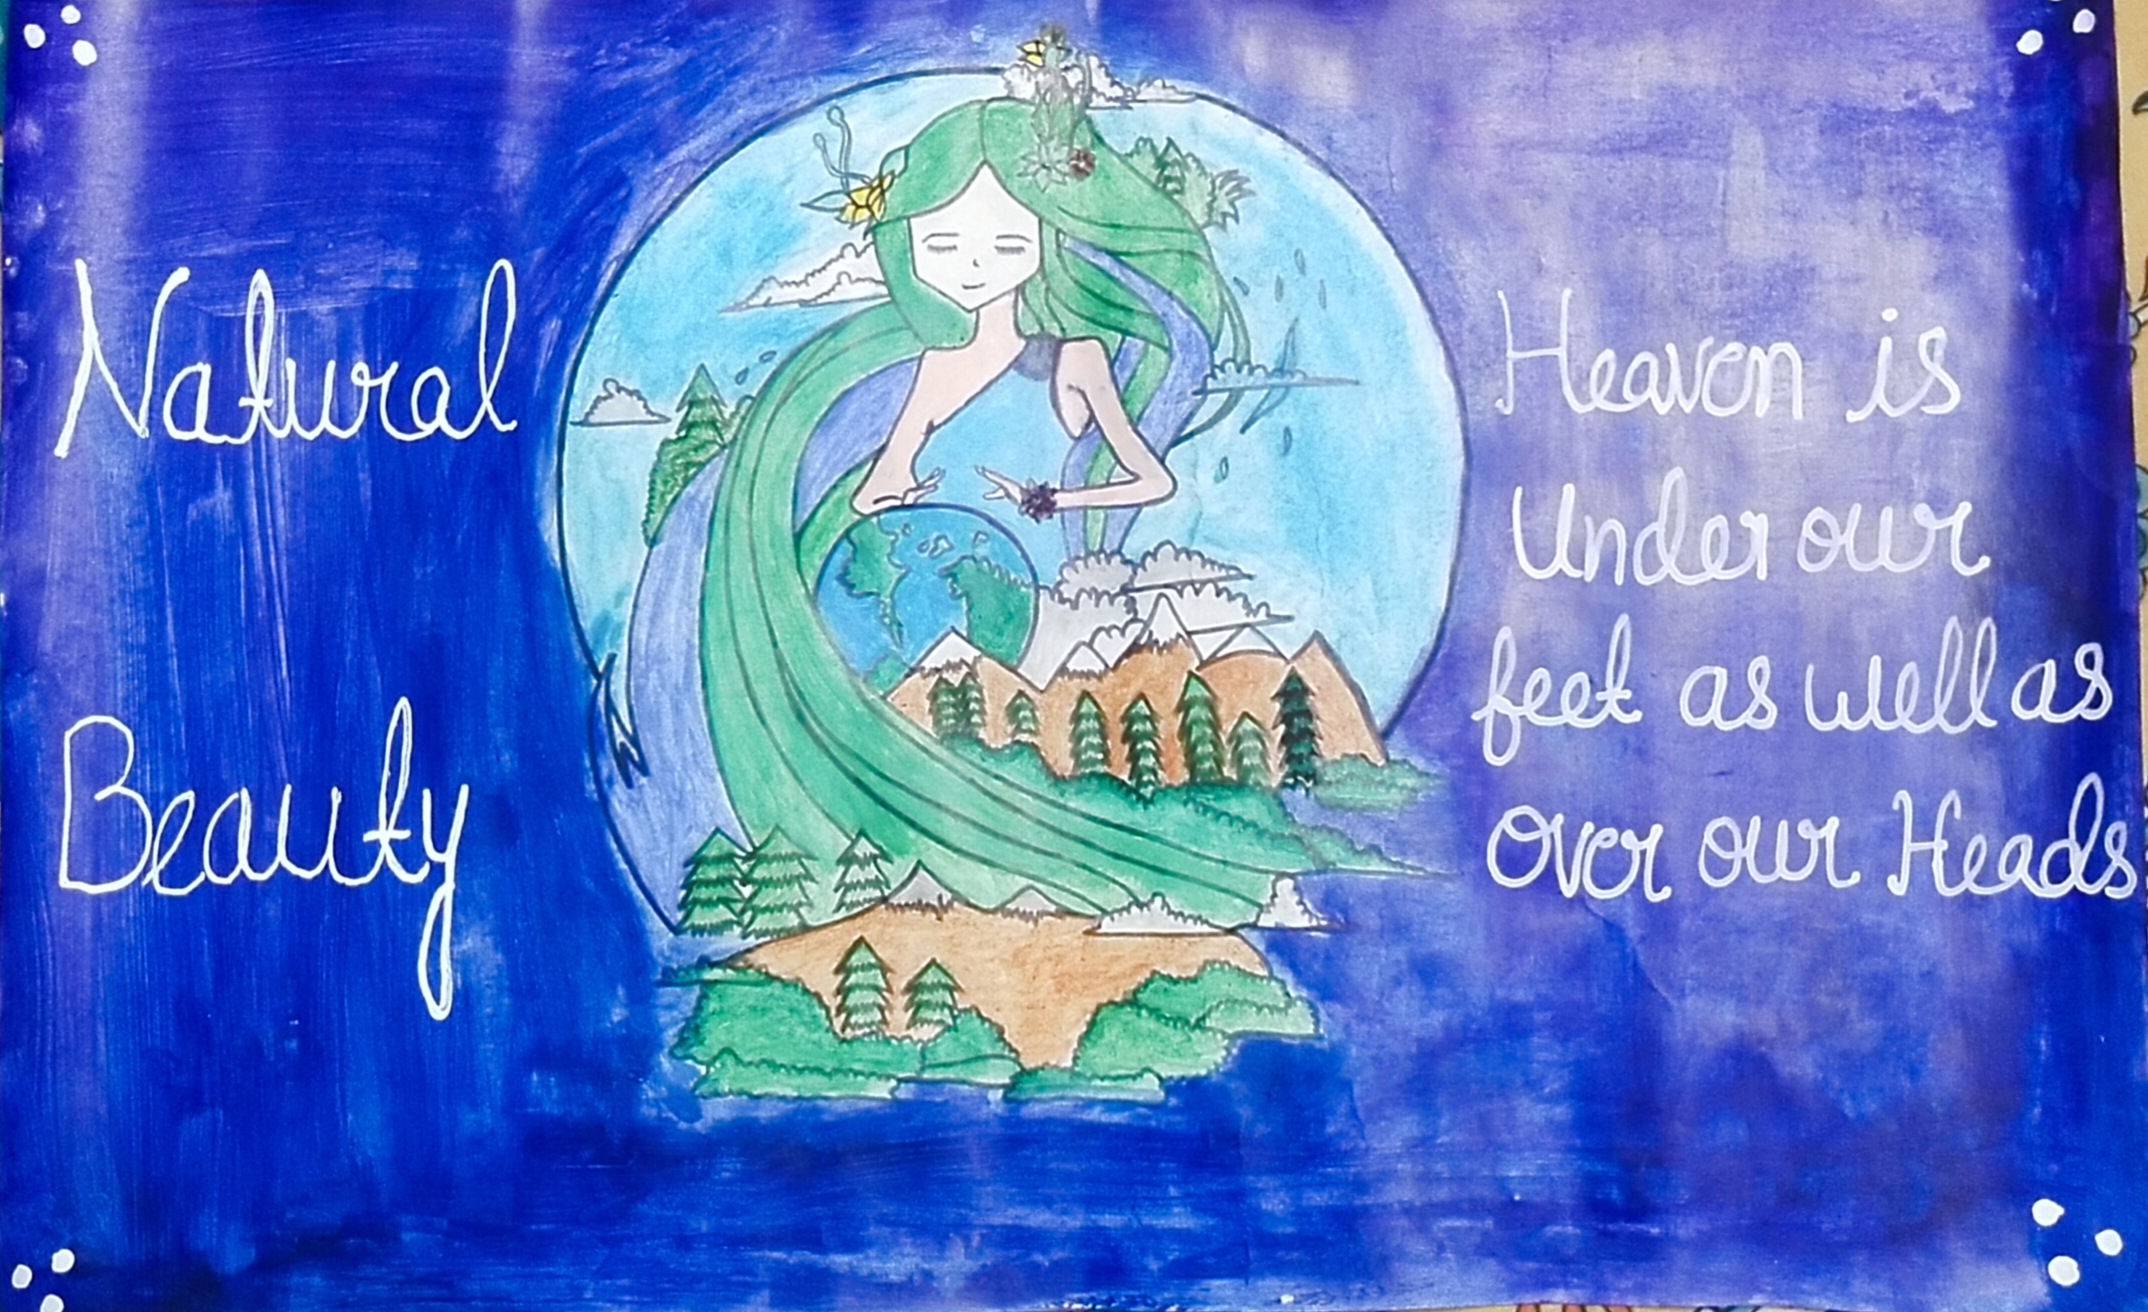 Natural
Beauty
Heaven is
Under our
feet as well as
over our Heads